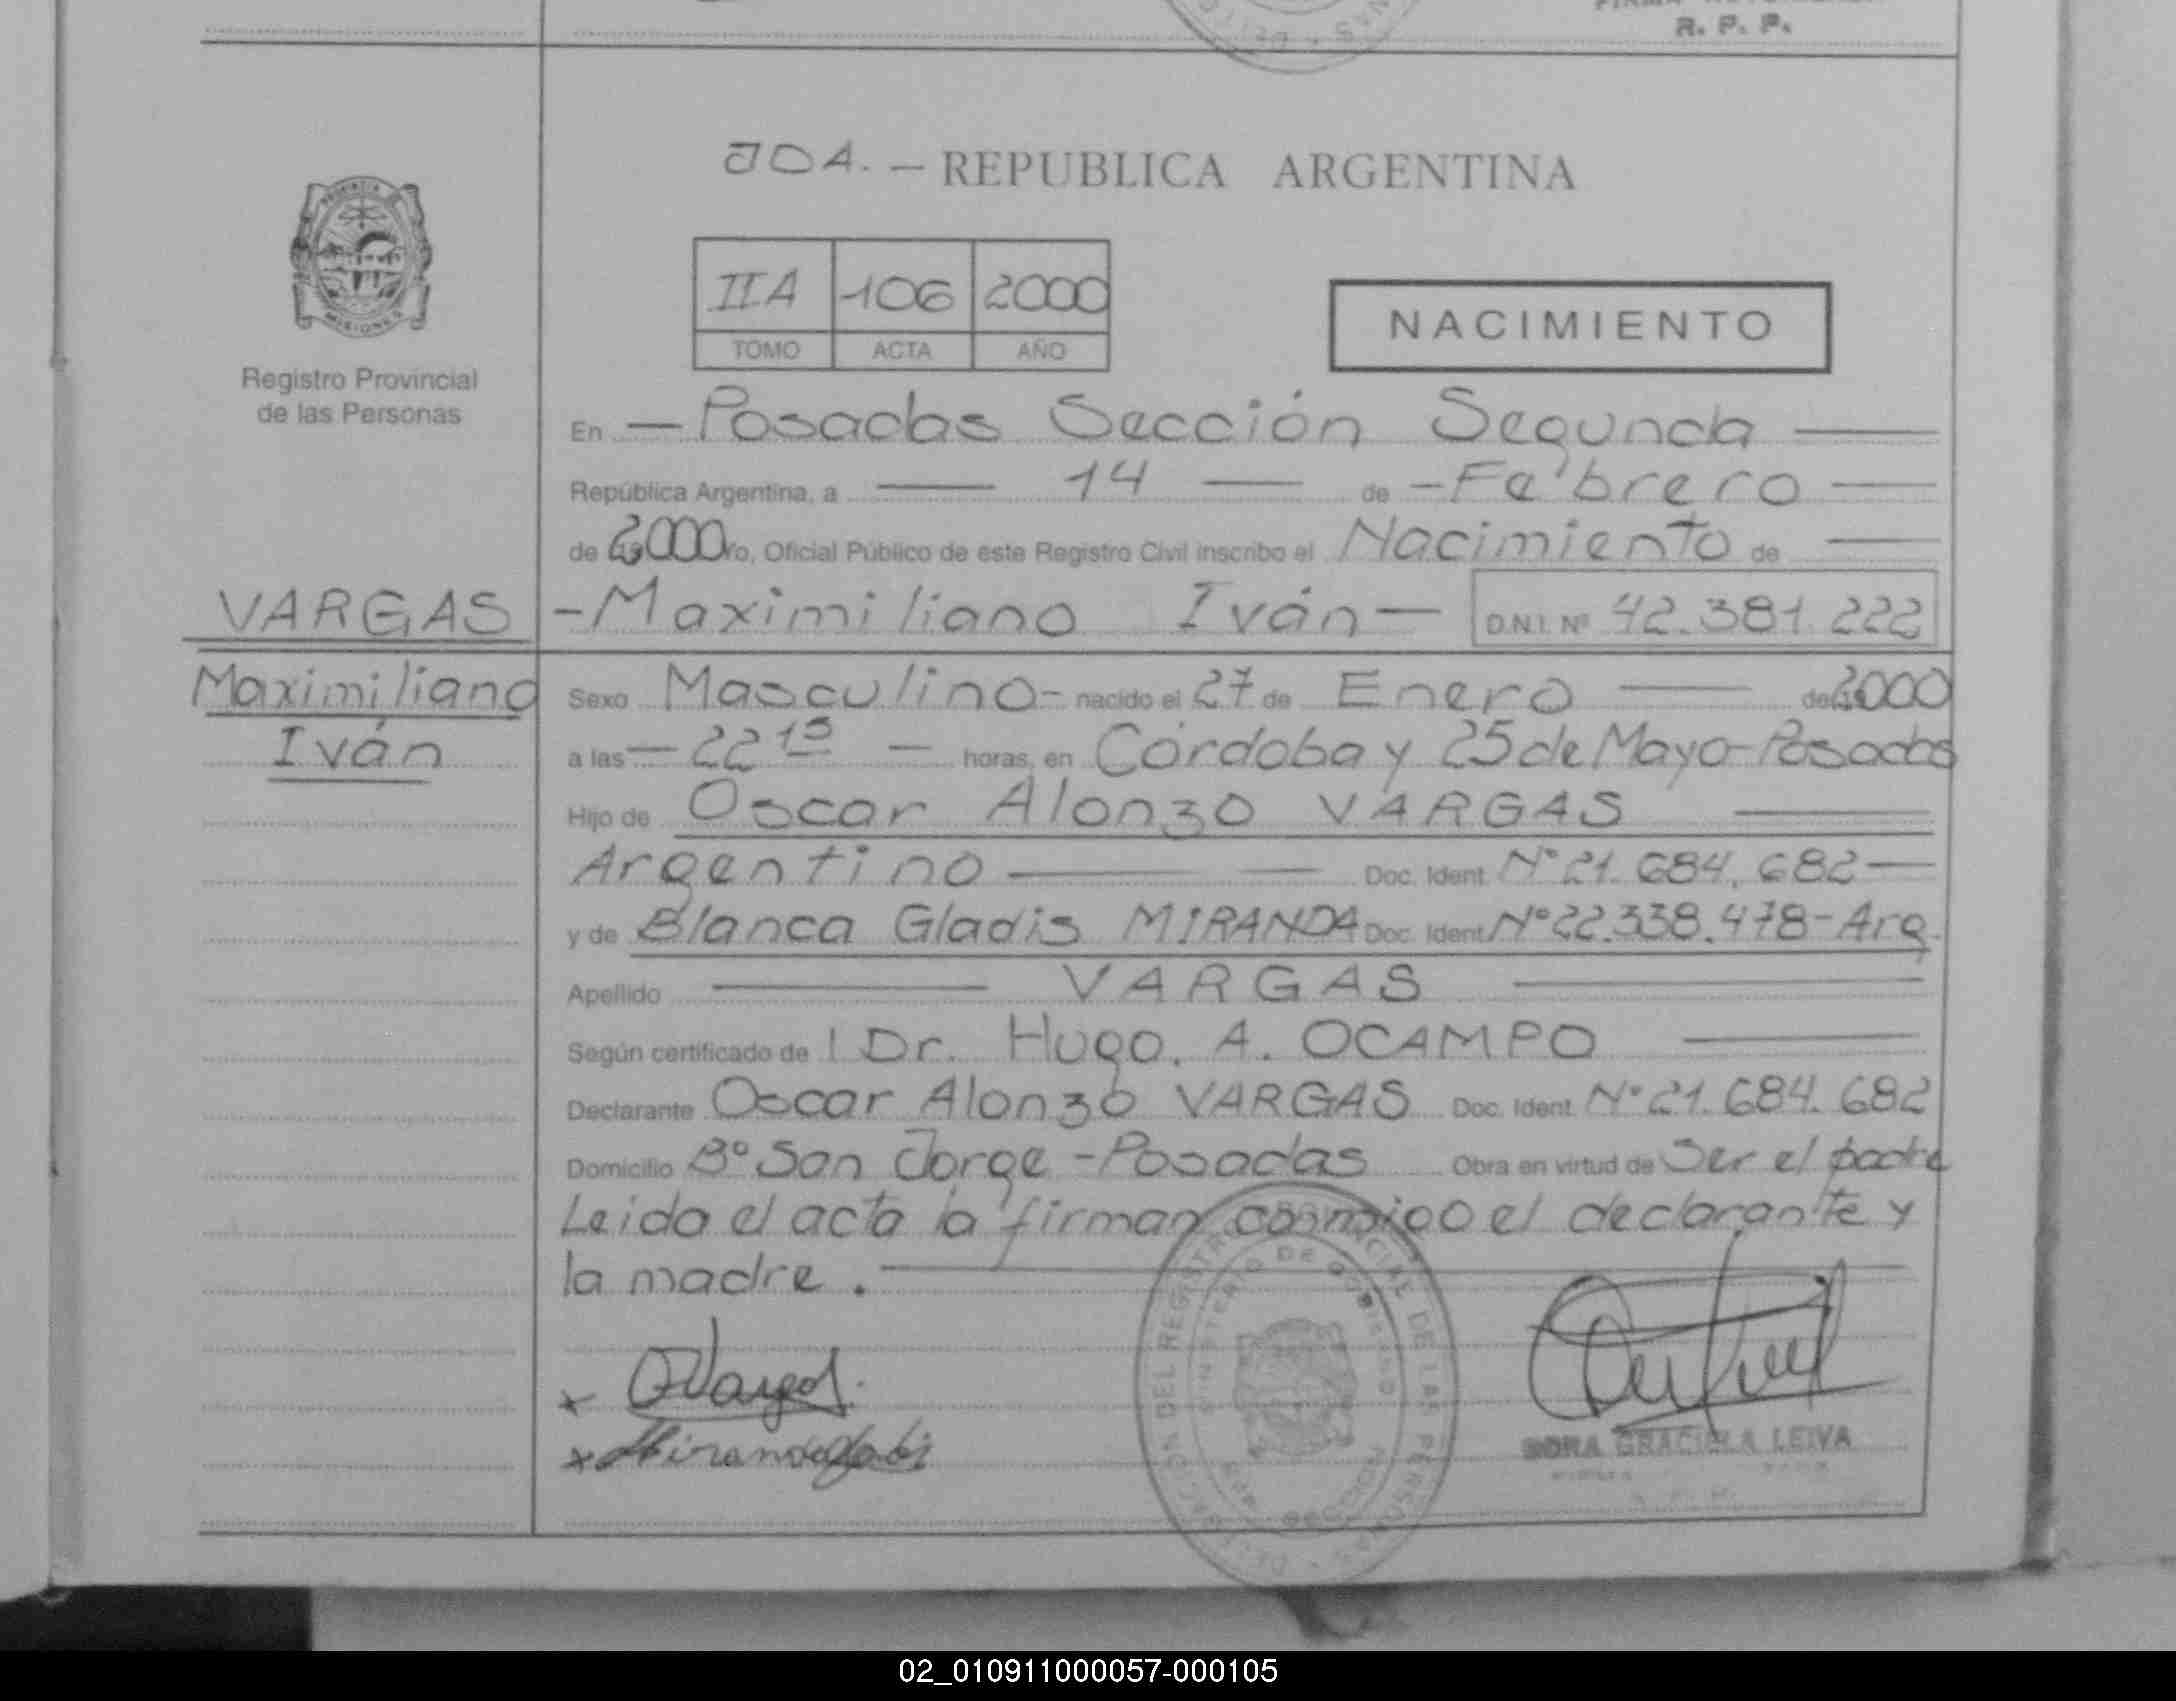 R. P. P.
JOA. — REPUBLICA ARGENTINA
PROVINCIA
MISIONES
Registro Provincial
de las Personas
IIA 106 2000
TOMO ACTA AÑO
NACIMIENTO
En — Posadas Sección Segunda —
República Argentina, a — 14 — de — Febrero —
de 2000 ro, Oficial Público de este Registro Civil inscribo el Nacimiento de —
VARGAS
Maximiliano
Iván
- Maximiliano Iván — D.N.I. Nº 42.381.222
Sexo Masculino - nacido el 27 de Enero — de 2000
a las — 22 15 — horas, en Córdoba y 25 de Mayo - Posadas
Hijo de Oscar Alonzo VARGAS —
Argentino — — Doc. Ident. Nº 21.684.682 —
y de Blanca Gladis MIRANDA Doc. Ident. Nº 22.338.478 - Arg.
Apellido — VARGAS —
Según certificado de l Dr. Hugo. A. OCAMPO —
Declarante Oscar Alonzo VARGAS Doc. Ident. Nº 21.684.682
Domicilio Bº San Jorge - Posadas Obra en virtud de Ser el padre
Leida el acta la firman conmigo el declarante y
la madre. —
x OVargas.
x Miranda
GRACIELA LEIVA
02_010911000057-000105